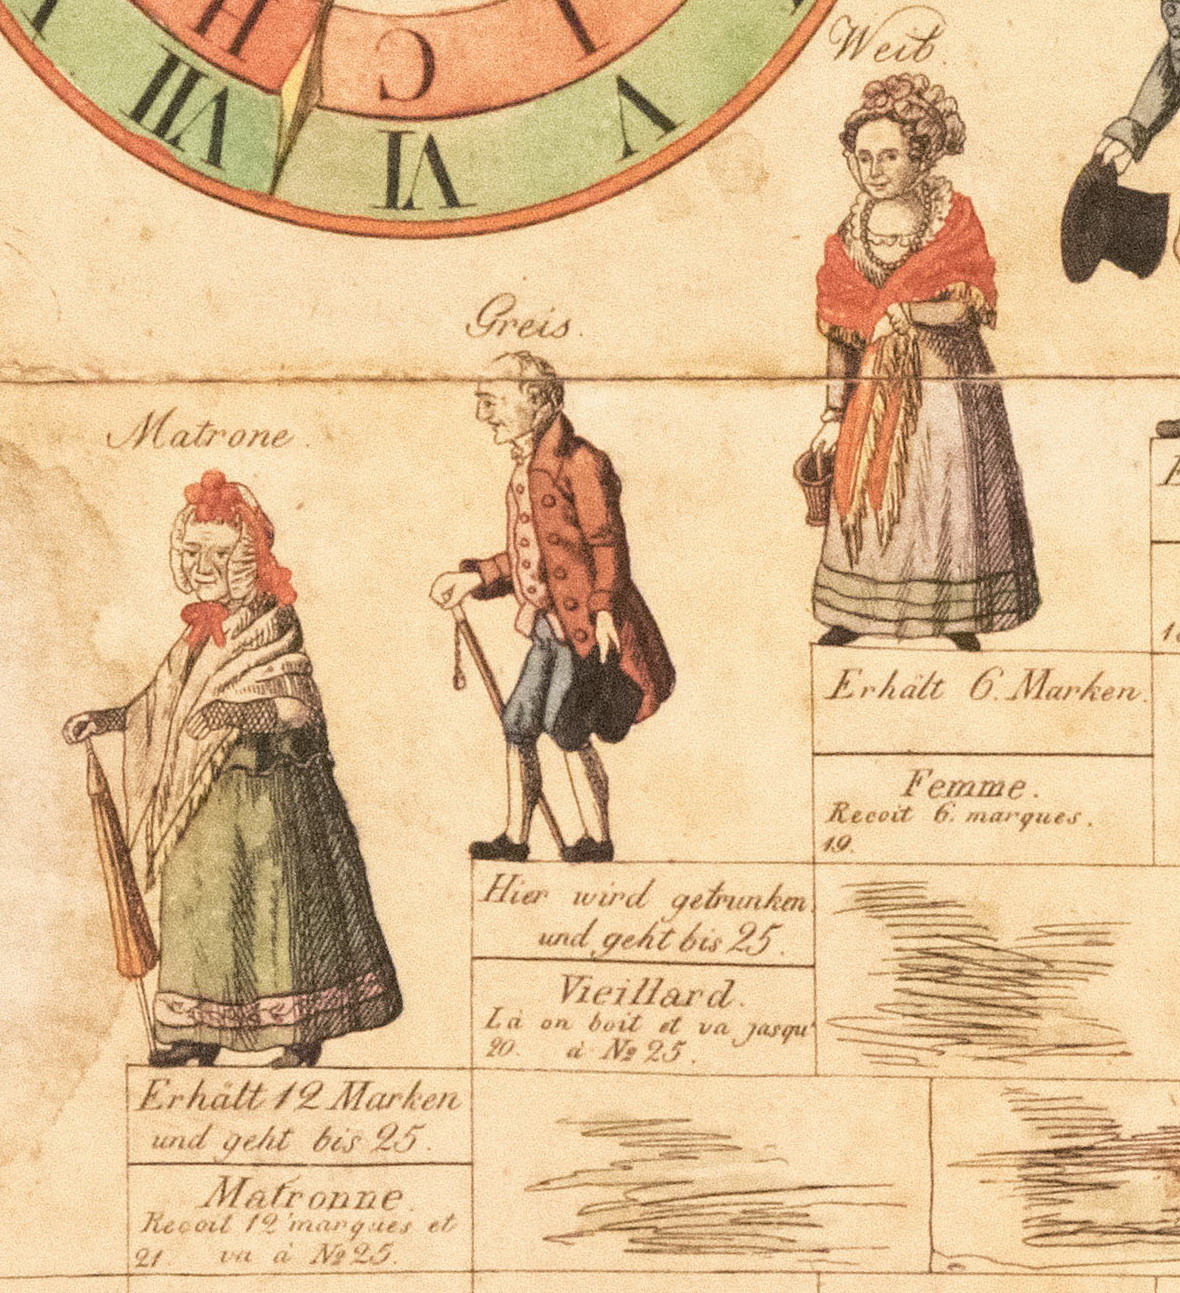 Weib.
Greis.
Matrone.
VII
VI
V
H
C
I
Erhält 6. Marken.
Femme.
Recoit 6. marques.
19.
Hier wird getrunken
und geht bis 25.
Vieillard.
Là on boit et va jusqu'
20. à No 25.
Erhält 12 Marken
und geht bis 25.
Matronne.
Recoit 12 marques et
21. va à No 25.